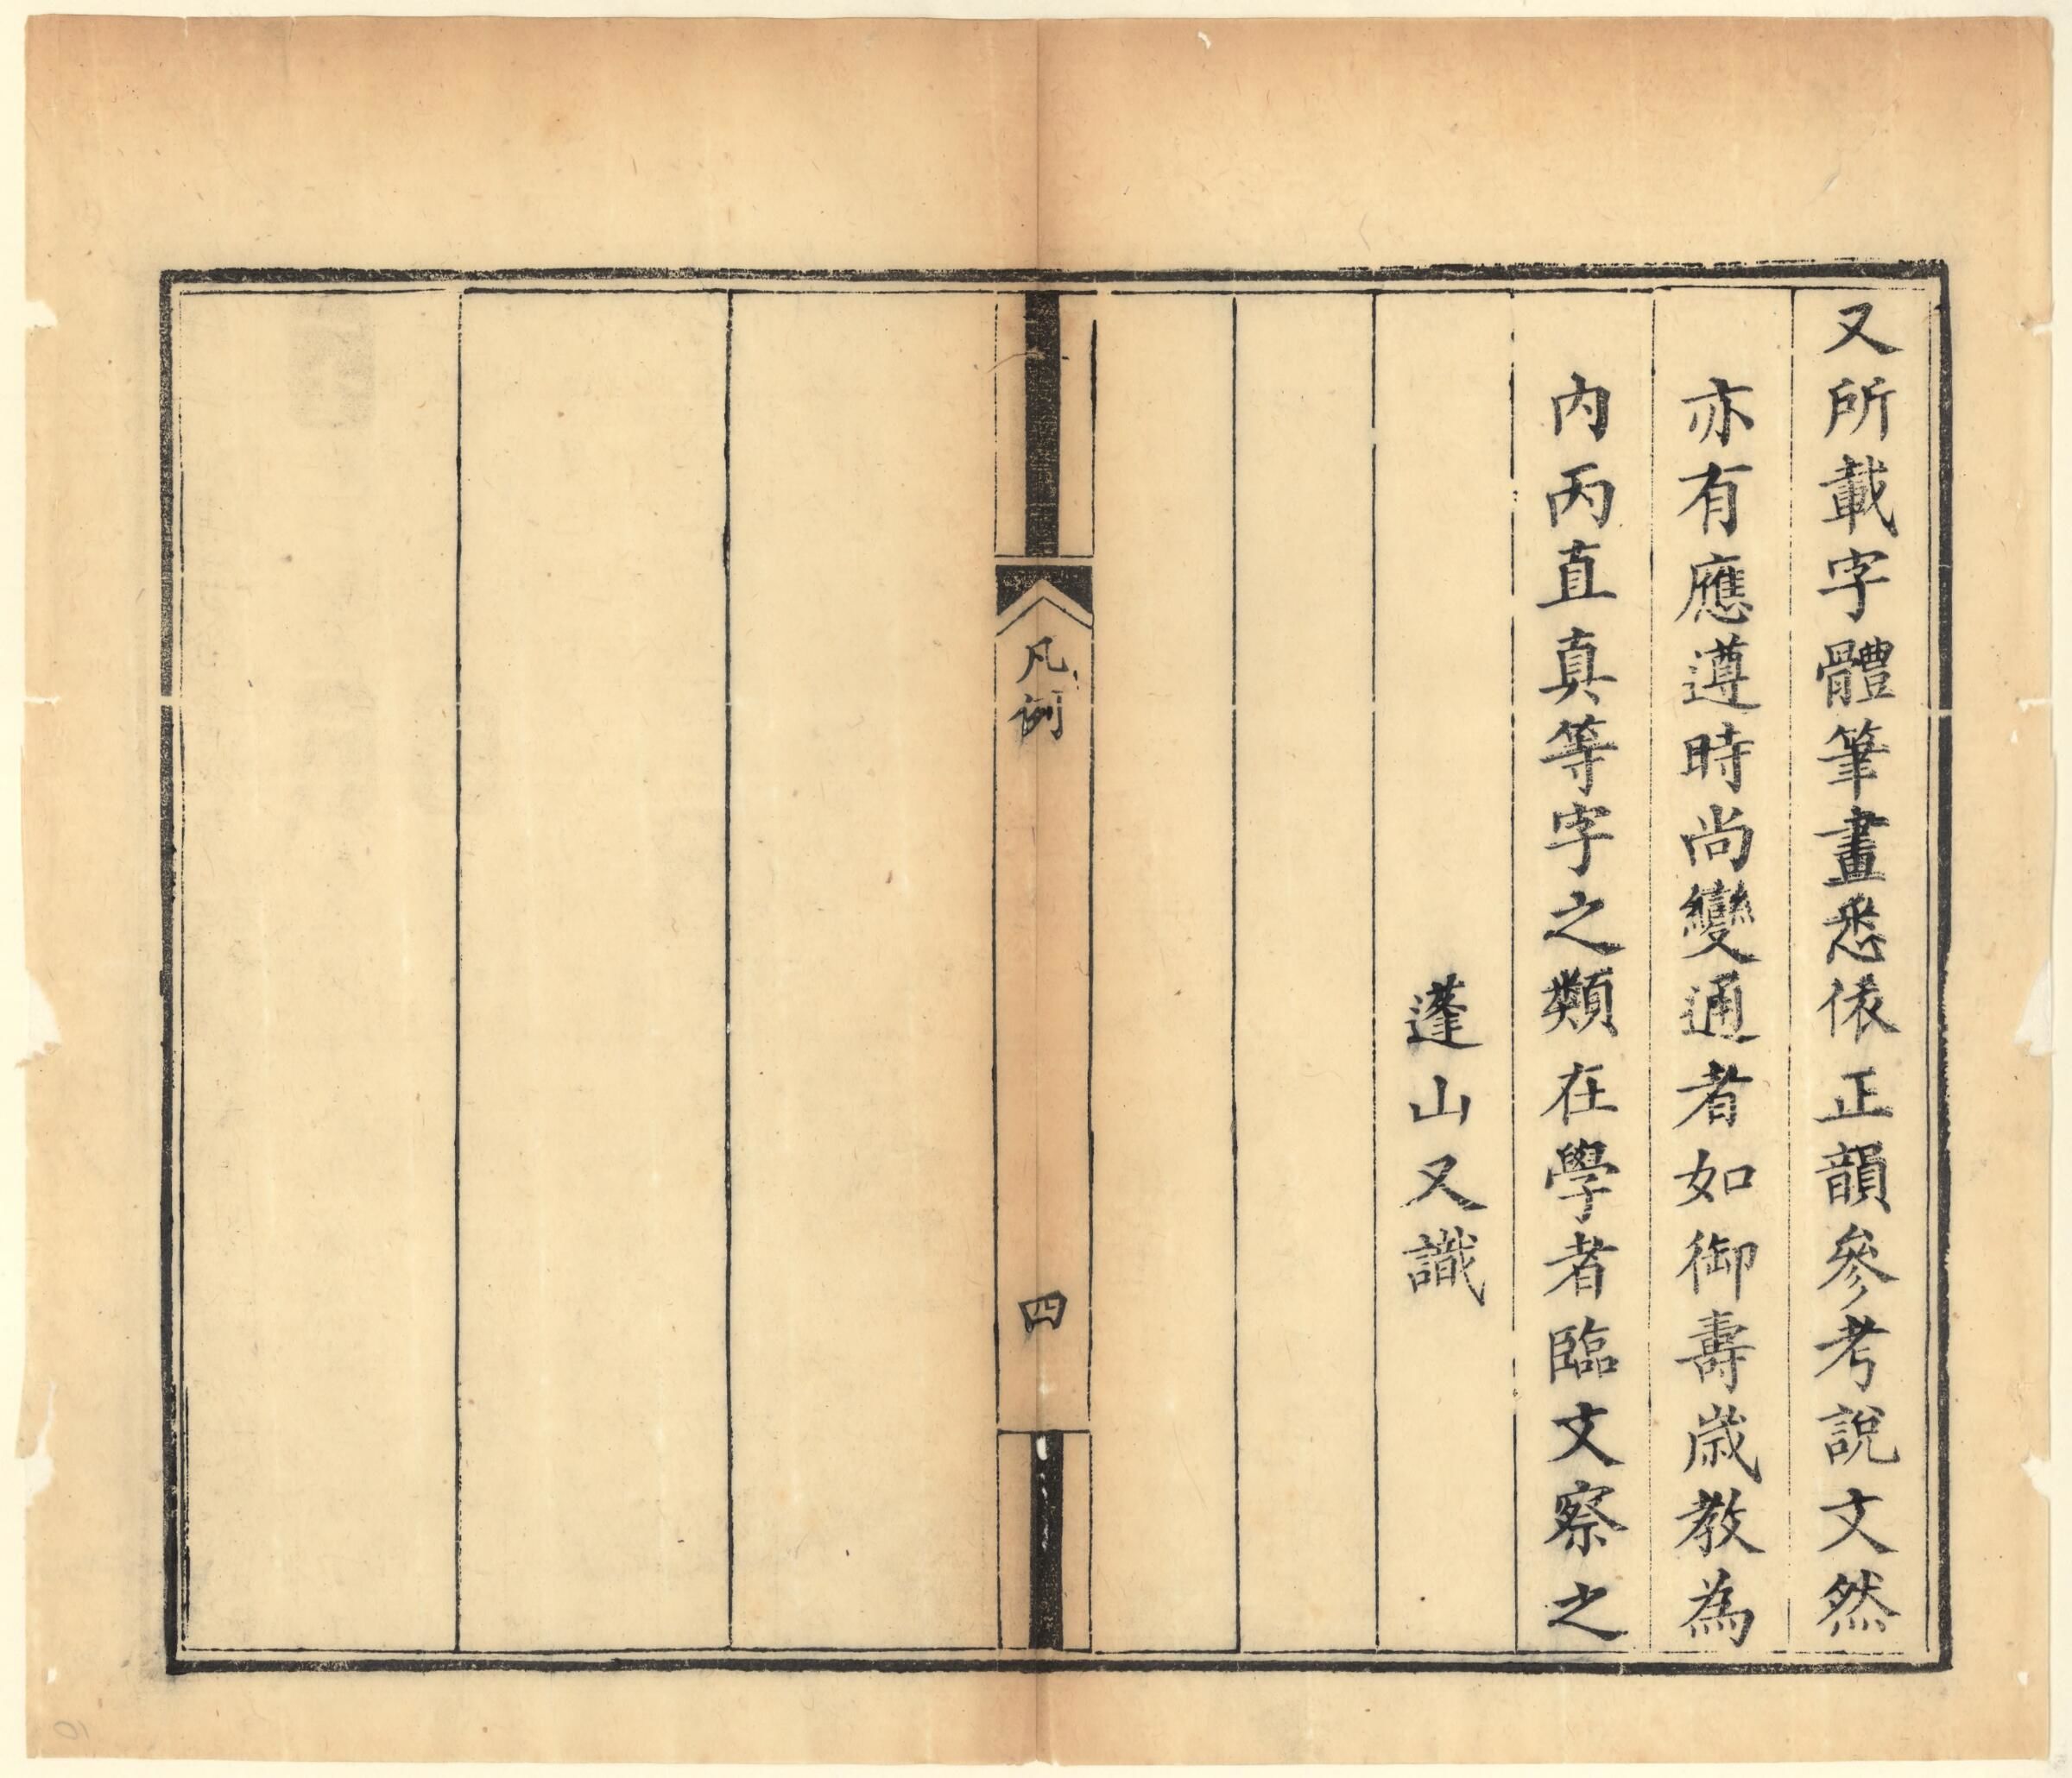 又所載字體筆畫悉依正韻參考說文然
亦有應遵時尚變通者如御壽歲教為
內丙直真等字之類在學者臨文察之
蓬山又識
凡例
四